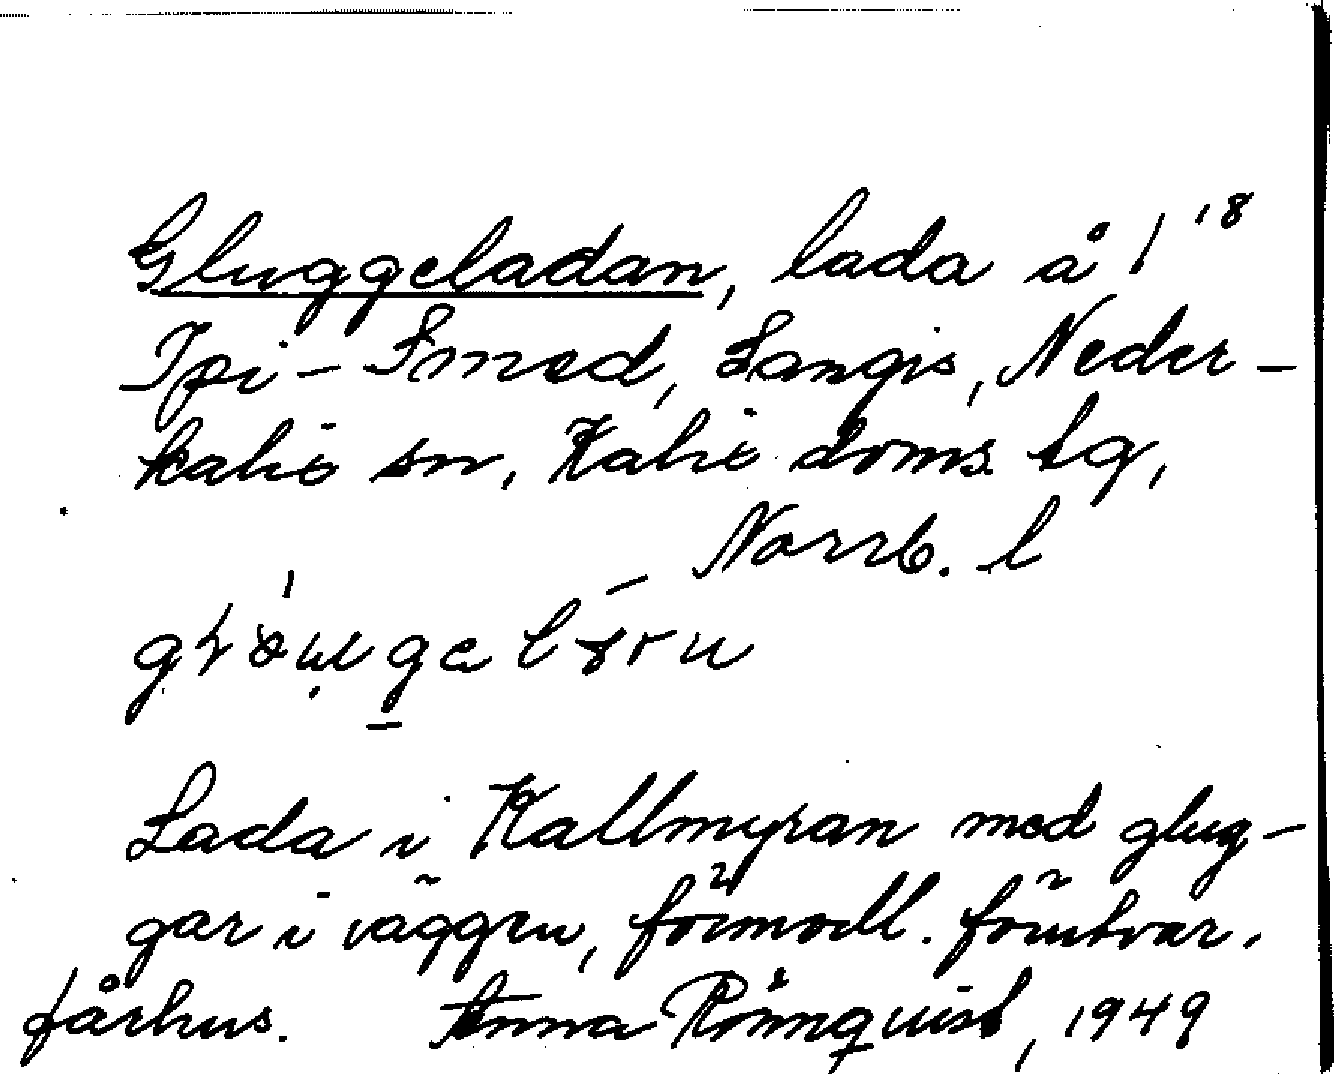 Gluggeladan, lada å 1¹⁸
Ipi-Smed, Sangis, Neder-
kalix sn, Kalix doms. tg,
Norrb. l
Lada i Kallmyran med glug-
gar i väggen, förmodl. förutvar.
fårhus. Anna Rönnquist, 1949